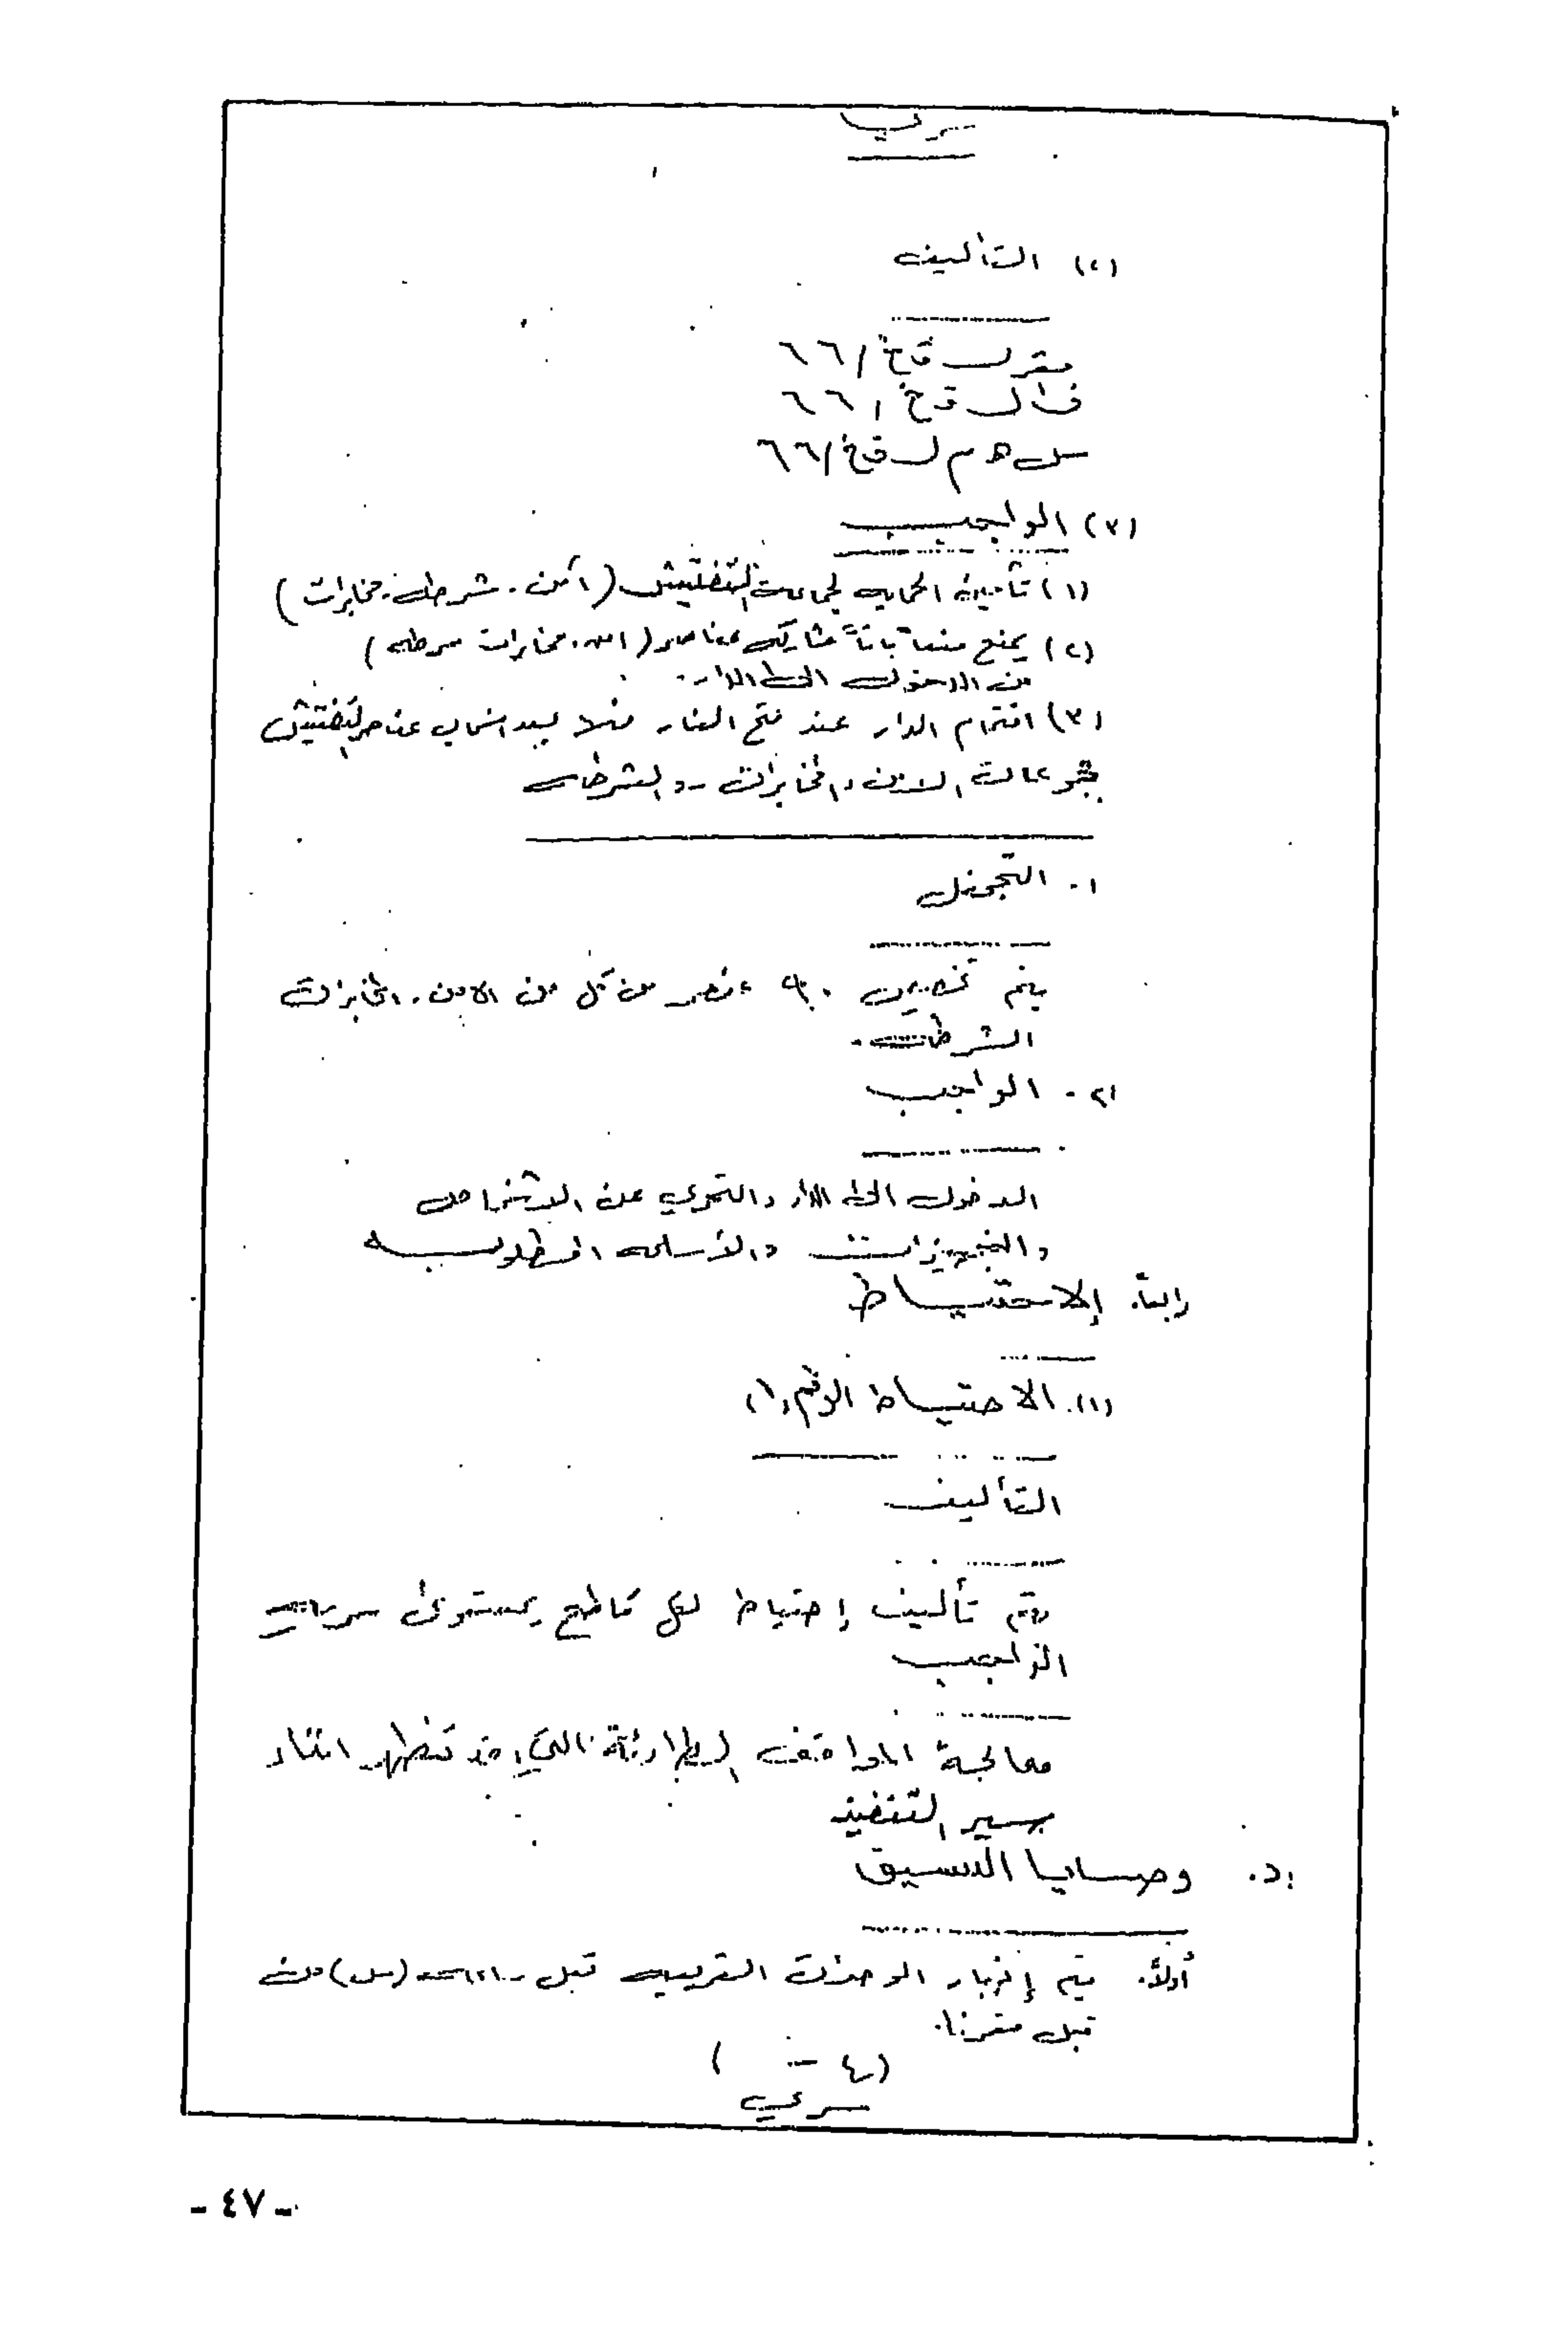 سري
(٢) التأليف
مقر ل ق خ / ٦٦
ف ١ ل ق خ / ٦٦
ل ق خ / ٦٦
(٣) الواجب
(١) تأمين الحماية لجماعة التفتيش (أمن. شرطة. مخابرات)
(٢) يمنع منعاً باتاً مشاركة عناصر (امن. مخابرات شرطة)
من الدخول الى الدار.
(٣) اقتحام الدار عند فتح النار انسحاب عناصر التفتيش
الامن والمخابرات والشرطة
١. التجحفل
يتم تخصيص عنصر من كل من الامن. المخابرات
الشرطة.
٢. الواجب
الدخول الى الدار والتحري عن الاشخاص
والتجهيزات والأسلحة المطلوبة
رابعاً. الاحتياط
(١). الاحتياط الرقم (١)
التأليف
يتم تأليف إحتياط لكل قاطع بمستوى سرية
الواجب
معالجة المواقف الطارئة التي قد تظهر اثناء
سير التنفيذ
د. وصايا التنسيق
أولاً. يتم إخبار الوحدات القريبة قبل (س) من
قبل مقرنا.
(٤ - )
سري
- ٤٧ -